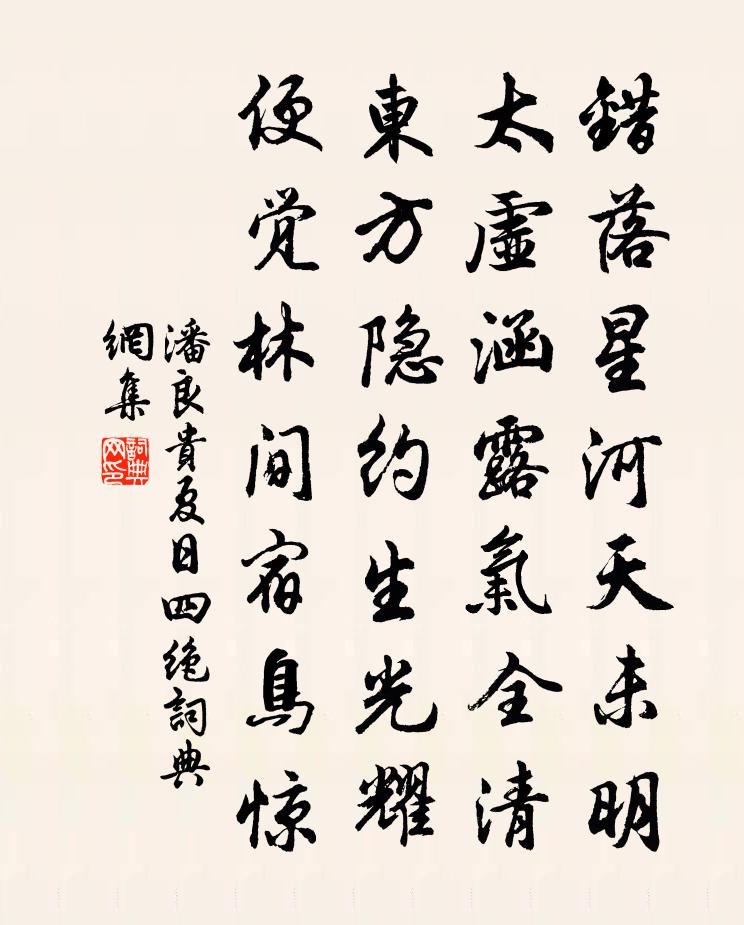 錯落星河天未明
太虛涵露氣全清
東方隐約生光耀
便覺林间宿鳥惊
潘良貴夏日四絶詞典
網集
詞典网印